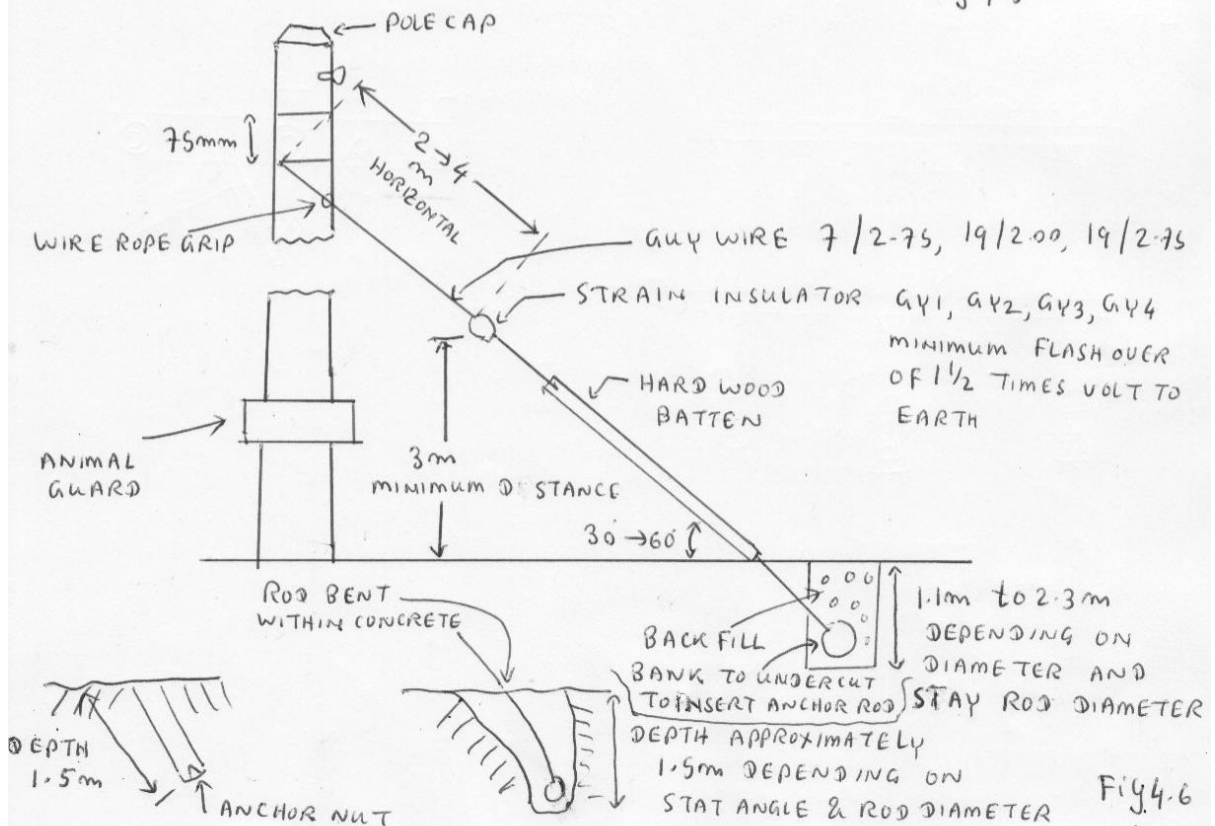 POLE CAP
75mm
2→4
m
HORIZONTAL
WIRE ROPE GRIP
GUY WIRE 7/2-75, 19/2.00, 19/2-75
STRAIN INSULATOR GY1, GY2, GY3, GY4
MINIMUM FLASH OVER
OF 1 1/2 TIMES VOLT TO
EARTH
HARD WOOD
BATTEN
ANIMAL
GUARD
3m
MINIMUM DISTANCE
30°→60°
ROD BENT
WITHIN CONCRETE
BACK FILL
1.1m to 2.3m
DEPENDING ON
DIAMETER AND
STAY ROD DIAMETER
BANK TO UNDERCUT
TO INSERT ANCHOR ROD
DEPTH
1.5m
ANCHOR NUT
DEPTH APPROXIMATELY
1.5m DEPENDING ON
STAT ANGLE & ROD DIAMETER
Fig 4.6